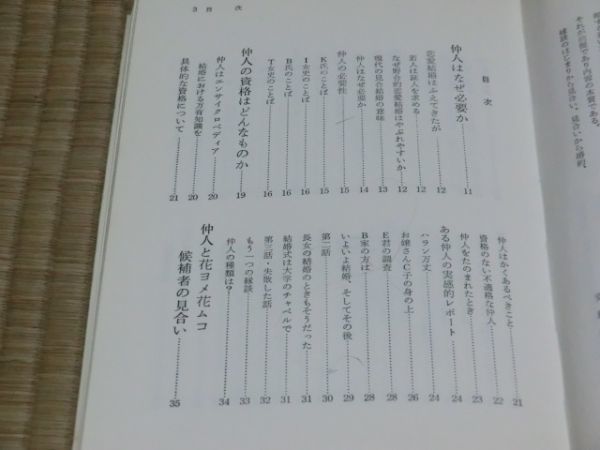 それが出雲であり内容の本質である。
目次
仲人はなぜ必要か 11
恋愛結婚はふえてきたが 12
若人は証人を求める 12
なぜ野合的恋愛結婚はやぶれやすいか 12
現代の見合結婚の意味 13
仲人はなぜ必要か 14
仲人の必要性 15
K氏のことば 15
I女史のことば 16
B氏のことば 16
T女史のことば 16
仲人の資格はどんなものか 19
仲人はエンサイクロペディア 20
結婚における万有知識を 20
具体的な資格について 21
仲人はかくあるべきこと 21
資格のない不適格な仲人 22
仲人をたのまれたとき 23
ある仲人の実感的レポート 24
ハラン万丈 24
お嬢さんC子の身の上 26
E君の調査 28
B家の方は 28
いよいよ結婚、そしてその後 29
第二話 30
長女の結婚のときもそうだった 31
結婚式は大学のチャペルで 31
第三話・失敗した話 32
もう一つの縁談 33
仲人の種類は? 34
仲人と花ヨメ花ムコ
候補者の見合い 35
3 目次